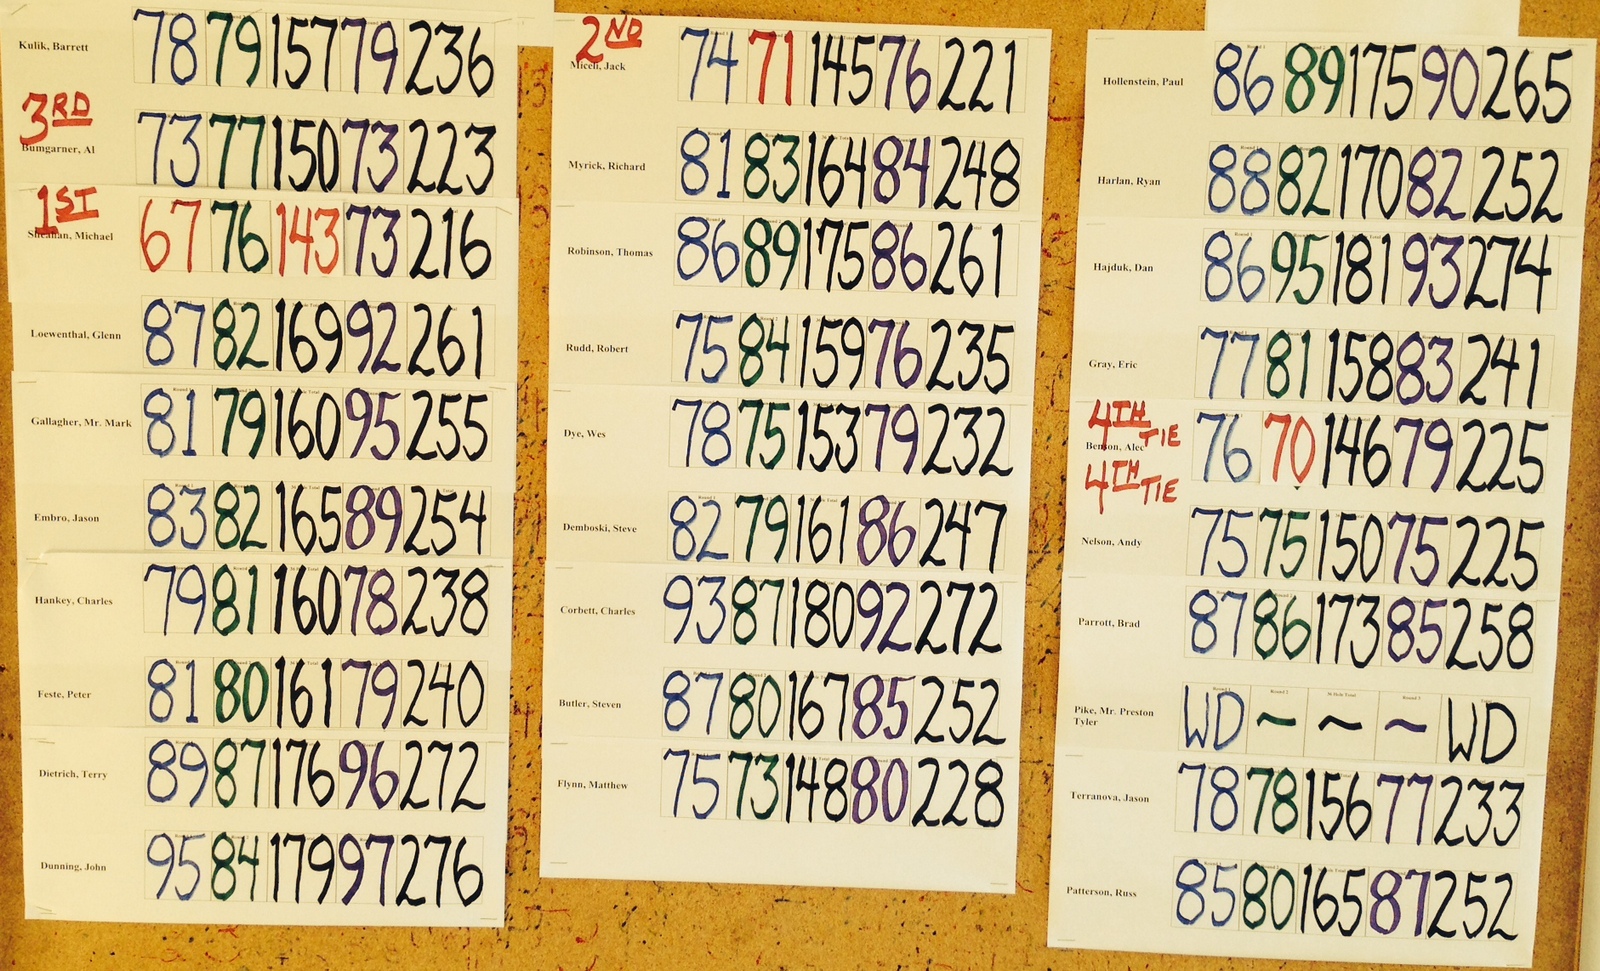 Kulik, Barrett 78 79 157 79 236
3RD
Bumgarner, Al 73 77 150 73 223
1ST
Sheahan, Michael 67 76 143 73 216
Loewenthal, Glenn 87 82 169 92 261
Gallagher, Mr. Mark 81 79 160 95 255
Embro, Jason 83 82 165 89 254
Hankey, Charles 79 81 160 78 238
Feste, Peter 81 80 161 79 240
Dietrich, Terry 89 87 176 96 272
Dunning, John 95 84 179 97 276
2ND
Miceli, Jack 74 71 145 76 221
Myrick, Richard 81 83 164 84 248
Robinson, Thomas 86 89 175 86 261
Rudd, Robert 75 84 159 76 235
Dye, Wes 78 75 153 79 232
Demboski, Steve 82 79 161 86 247
Corbett, Charles 93 87 180 92 272
Butler, Steven 87 80 167 85 252
Flynn, Matthew 75 73 148 80 228
Hollenstein, Paul 86 89 175 90 265
Harlan, Ryan 88 82 170 82 252
Hajduk, Dan 86 95 181 93 274
Gray, Eric 77 81 158 83 241
4TH TIE
Benson, Alec 76 70 146 79 225
4TH TIE
Nelson, Andy 75 75 150 75 225
Parrott, Brad 87 86 173 85 258
Pike, Mr. Preston WD ~ ~ ~ WD
Tyler
Terranova, Jason 78 78 156 77 233
Patterson, Russ 85 80 165 87 252